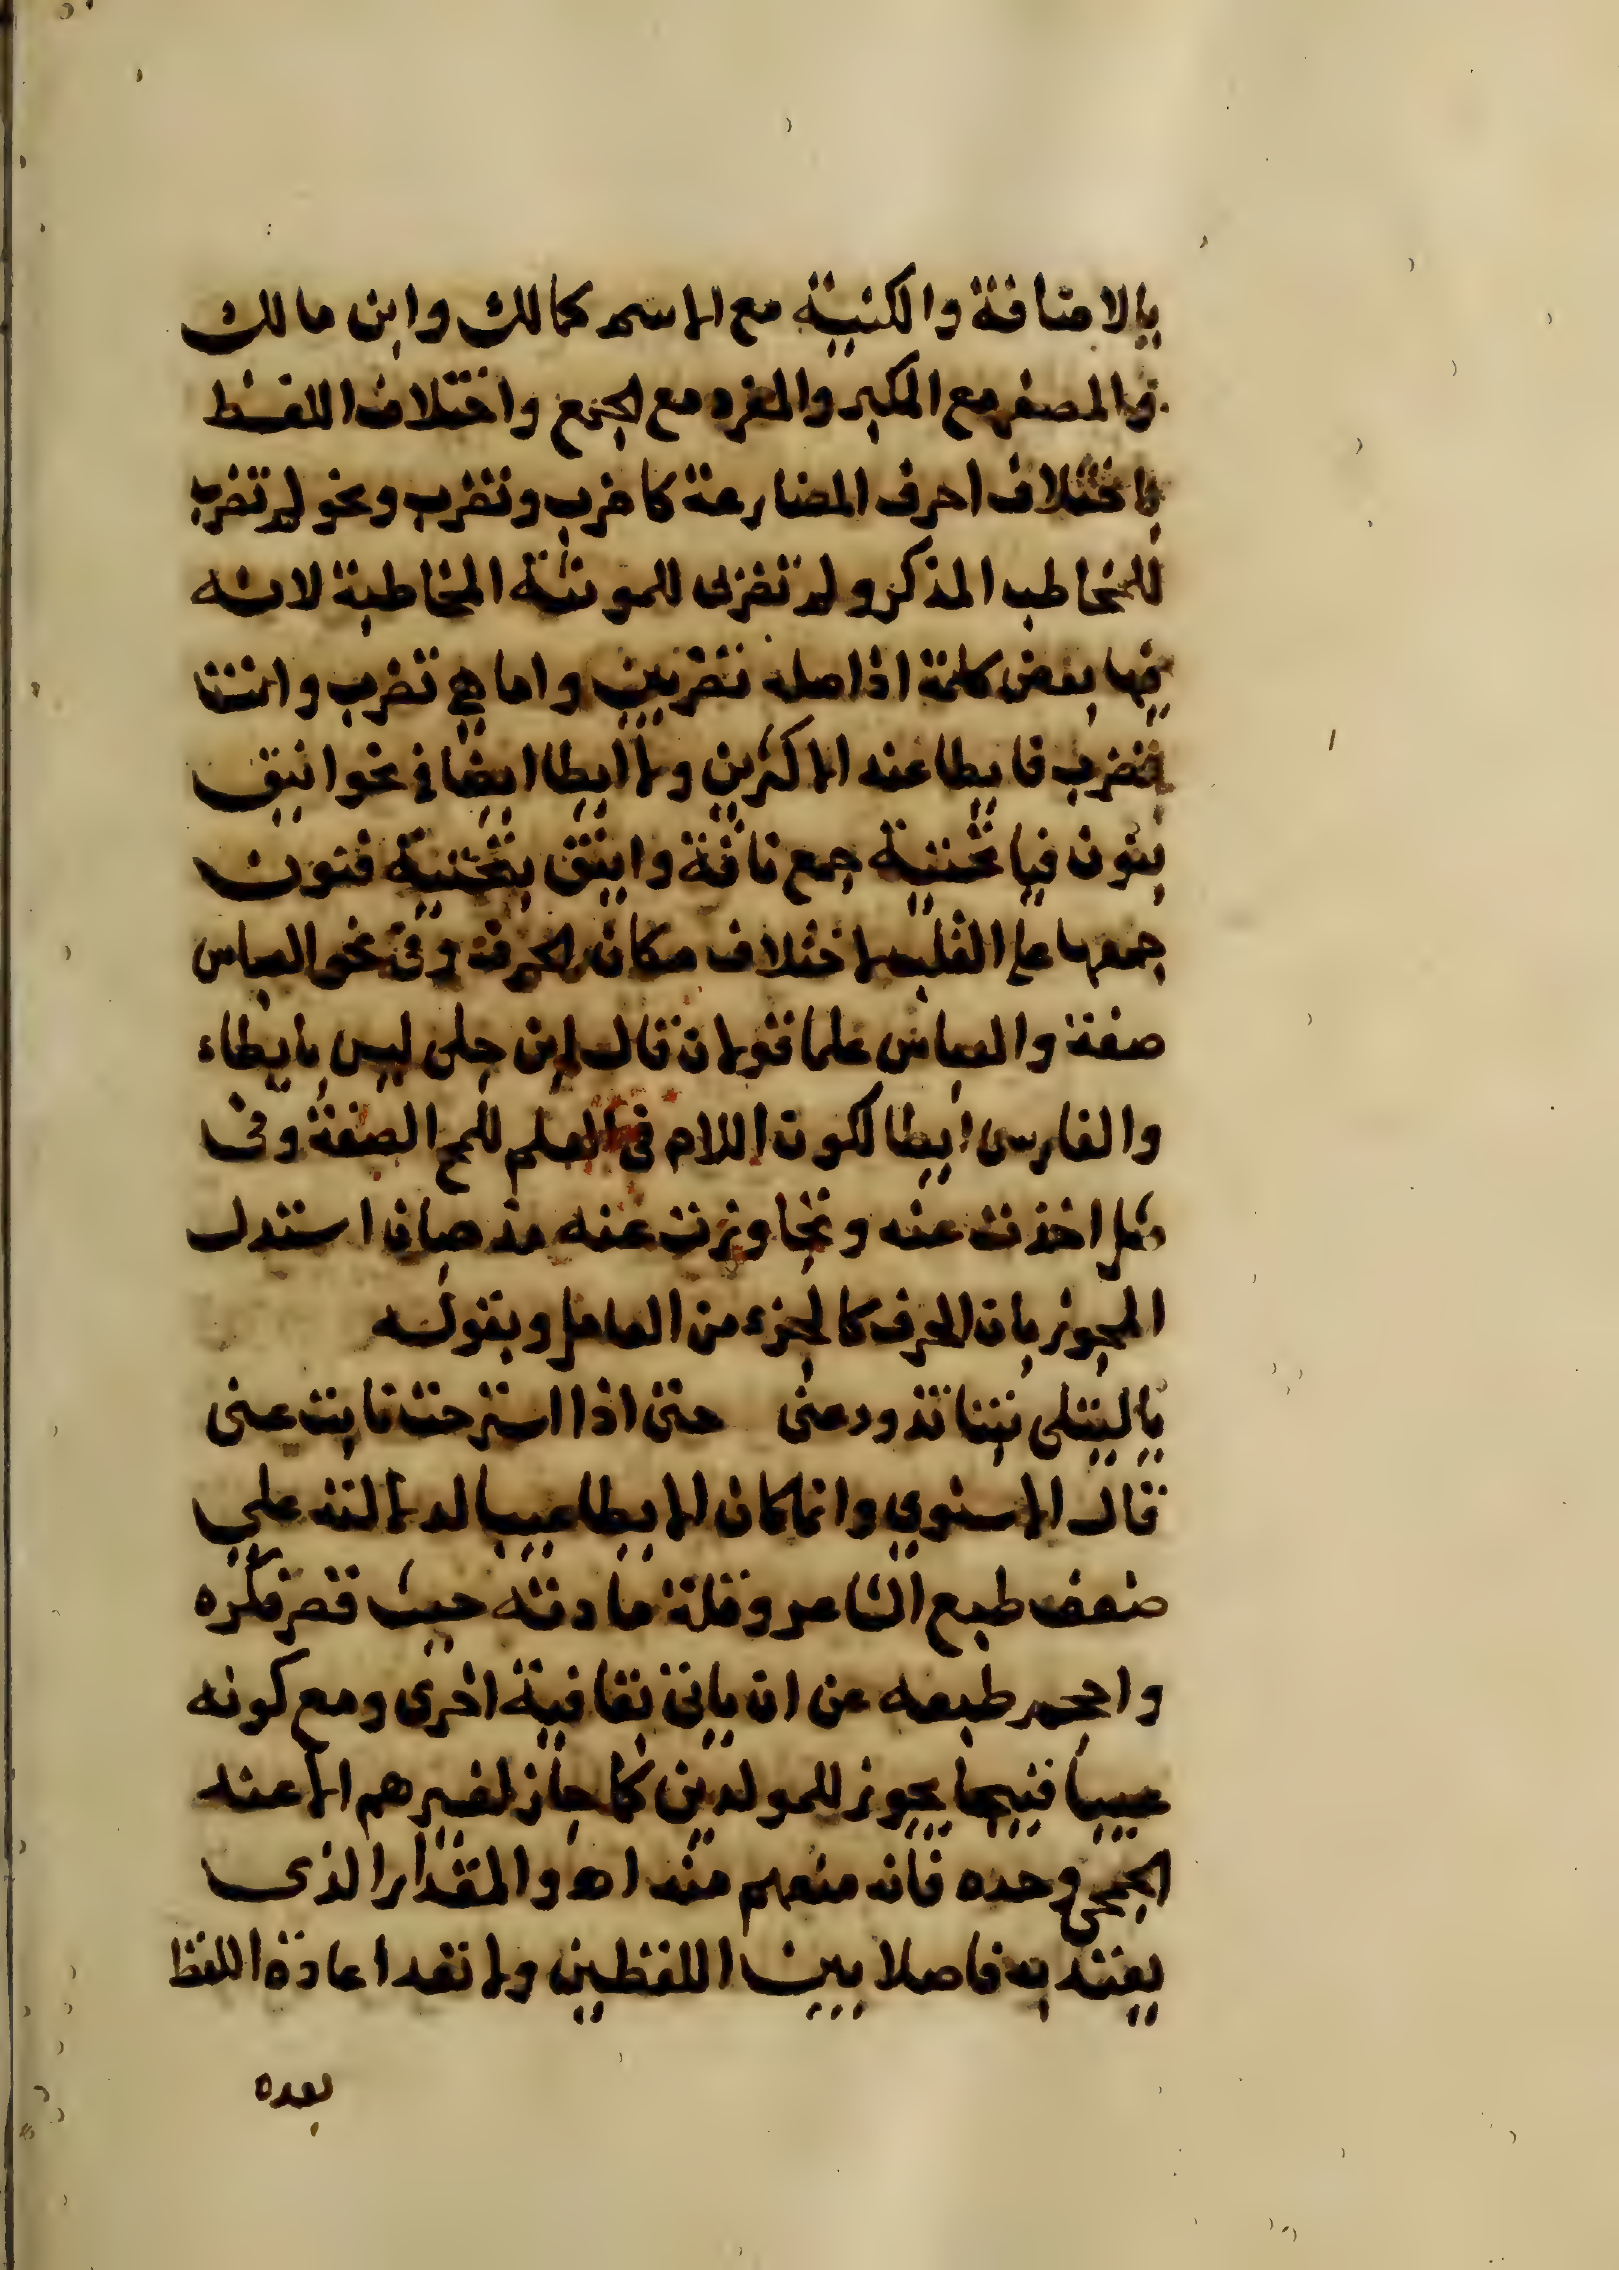 بالاضافة والكنيية مع الاسم كمالك وابن مالك
والمصغر مع المكبر والمفرد مع الجمع واختلاف اللفظ
باختلاف احرف المضارعة كاضرب ونضرب ونحو لم تضرب
للمخاطب المذكر ولم تضربى للمونثة المخاطبة لانه
فيها بعض كلمة اذ اصله تضربين واما هي تضرب وانت
تضرب فايطا عند الاكثرين ولا ايطا ايضا في نحو انيق
بنون فيا تحتية جمع ناقة واينق بتحتية فنون
جمعها على القلب لاختلاف مكان الحرف وفى نحو العباس
صفة والعباس علما قولان قال ابن جنى ليس بايطاء
والفارسى ايطا لكون اللام فى العلم للمح الصفة وفى
مثل اخذت عنه وتجاوزت عنه مذهبان استدل
المجوز بان الحرف كالجزء من العامل وبقوله
ياليتلى بنتا تذود عنى حتى اذا استرحت نابت عنى
قال الاسنوي وانما كان الايطا عيبا لدلالته علي
ضعف طبع الشاعر وقلة مادته حيث قصر فكره
واحجم طبعه عن ان ياتى بقافية اخرى ومع كونه
عيبا قبيحا يجوز للمولدين كما جاز لغيرهم الا عند
الجمحى وحده فانه منعهم منه اه والمقدار الذى
يعتد به فاصلا بين اللفظين ولا تعد اعادة اللفظ
بعده